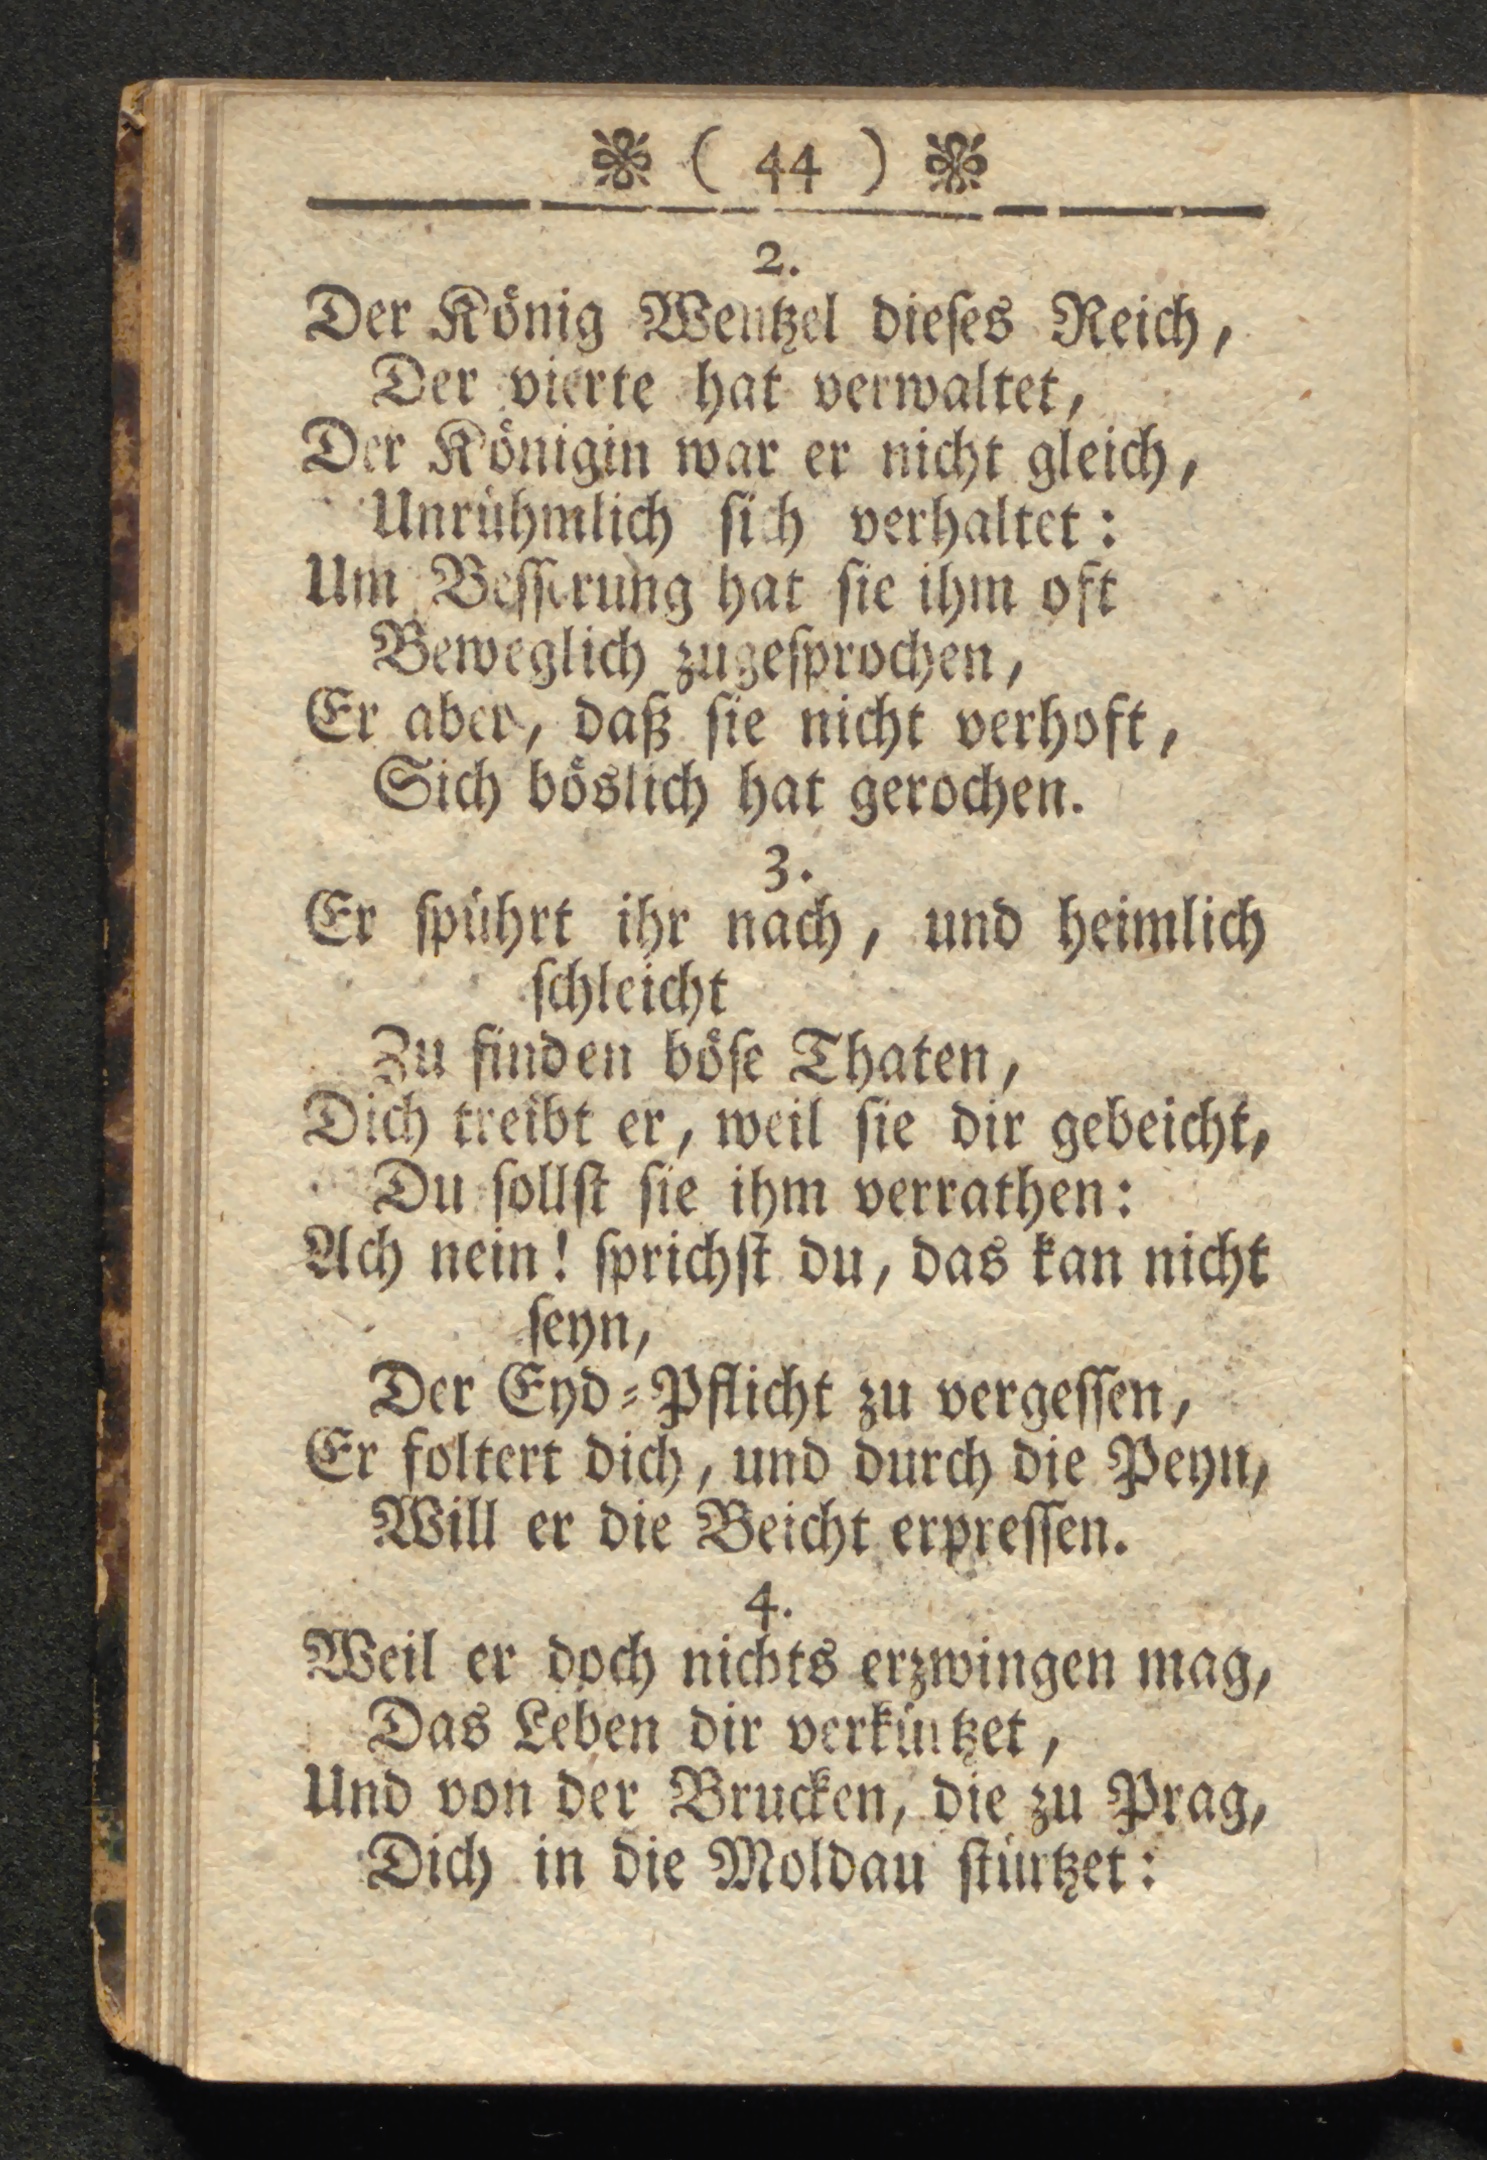 ❋ ( 44 ) ❋
2.
Der König Wentzel dieſes Reich,
Der vierte hat verwaltet,
Der Königin war er nicht gleich,
Unrühmlich ſich verhaltet:
Um Beſſerung hat ſie ihm oft
Beweglich zugeſprochen,
Er aber, daß ſie nicht verhoft,
Sich böslich hat gerochen.
3.
Er ſpührt ihr nach, und heimlich
ſchleicht
Zu finden böſe Thaten,
Dich treibt er, weil ſie dir gebeicht,
Du ſollſt ſie ihm verrathen:
Ach nein! ſprichſt du, das kan nicht
ſeyn,
Der Eyd-Pflicht zu vergeſſen,
Er foltert dich, und durch die Peyn,
Will er die Beicht erpreſſen.
4.
Weil er doch nichts erzwingen mag,
Das Leben dir verkürtzet,
Und von der Brucken, die zu Prag,
Dich in die Moldau ſtürtzet: